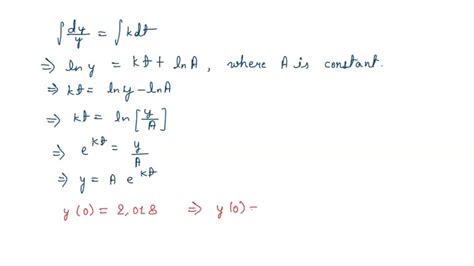 ∫ dy/y = ∫ kdt
⇒ ln y = kt + ln A , where A is constant.
⇒ kt = ln y − ln A
⇒ kt = ln [y/A]
⇒ e^kt = y/A
⇒ y = A e^kt
y(0) = 2,018 ⇒ y(0) =